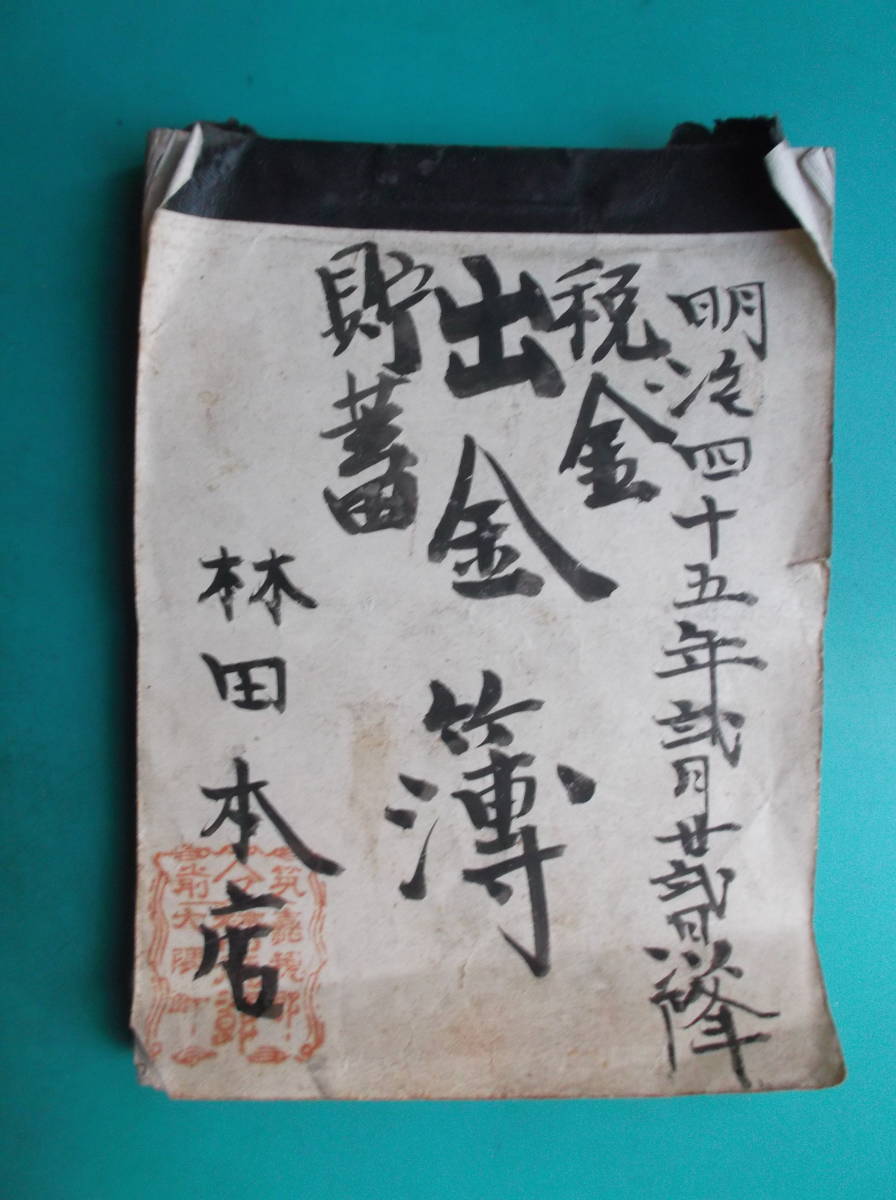 明治四十五年弐月廿弐日以降
税金
出金簿
貯蓄
林田本店
筑 嘉穂郡
前 大隈町